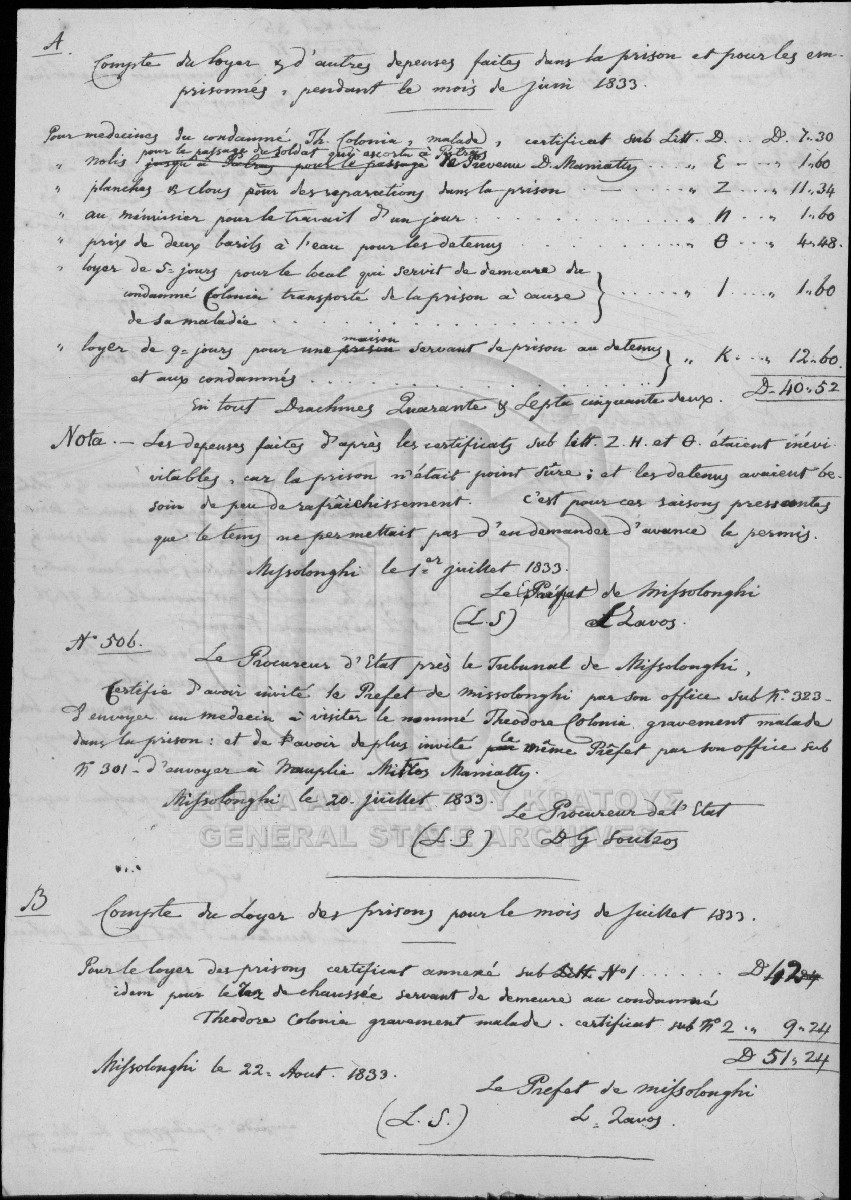 A
Compte du loyer & d'autres depenses faites dans la prison et pour les em-
prisonnés, pendant le mois de juin 1833.
Pour medecines du condamné Th. Colonia, malade, certificat sub Litt. D. .. D. 7,,30
pour le passage du soldat qui escorta à Patras
„ nolis jusqu'à Patras pour le passage le Prevenu D. Maniatty .... „ E - ... „ 1,,60
„ planches & clous pour des reparations dans la prison . — . — „ Z ... „ 11,,34
„ au ménuisier pour le travail d'un jour ........... „ H ... „ 1,,60
„ prix de deux barils à l'eau pour les detenus ........ „ Θ ... „ 4,,48.
„ loyer de 5= jours pour le local qui servit de demeure du
condamné Colonia transporté de la prison à cause } ...... „ I .... „ 1,,60
de sa maladée ................
maison
„ loyer de 9= jours pour une prison servant de prison au detenus } „ K. .. „ 12,,60.
et aux condamnés ............
D= 40,,52
En tout Drachmes Quarante & Lepta cinquante deux.
Nota. — Les depenses faites d'après les certificats sub litt. Z. H. et Θ. étaient inévi-
vitables, car la prison n'était point sûre; et les detenus avaient be-
soin de peu de rafraîchissement. C'est pour ces raisons pressantes
que le tems ne permettait pas d'en demander d'avance le permis.
Missolonghi le 1=er juillet 1833.
Le Préfet de Missolonghi
(L.S) L Zavos.
N° 506.
Le Procureur d'Etat près le Tribunal de Missolonghi,
Certifie d'avoir invité le Prefet de missolonghi par son office sub N° 323-
d'envoyer un medecin à visiter le nommé Theodore Colonia gravement malade
dans la prison: et de l'avoir de plus invité le même Prêfet par son office sub
N° 301 - d'envoyer à Nauplie Mittos Maniatty.
Missolonghi le 20. juillet 1833.
Le Procureur de l'Etat
(L.S) D G Soutzos
ΓΕΝΙΚΑ ΑΡΧΕΙΑ ΤΟΥ ΚΡΑΤΟΥΣ
GENERAL STATE ARCHIVES
B
Compte du Loyer des prisons pour le mois de juillet 1833.
Pour le loyer des prisons certificat annexé sub Litt. N° 1 ...... D 42
idem pour le rez de chaussée servant de demeure au condamné
Theodore Colonia gravement malade. certificat sub N° 2 . „ 9,,24
D 51,,24
Missolonghi le 22= Aout. 1833.
Le Prefet de missolonghi
(L.S.) L= Zavos.